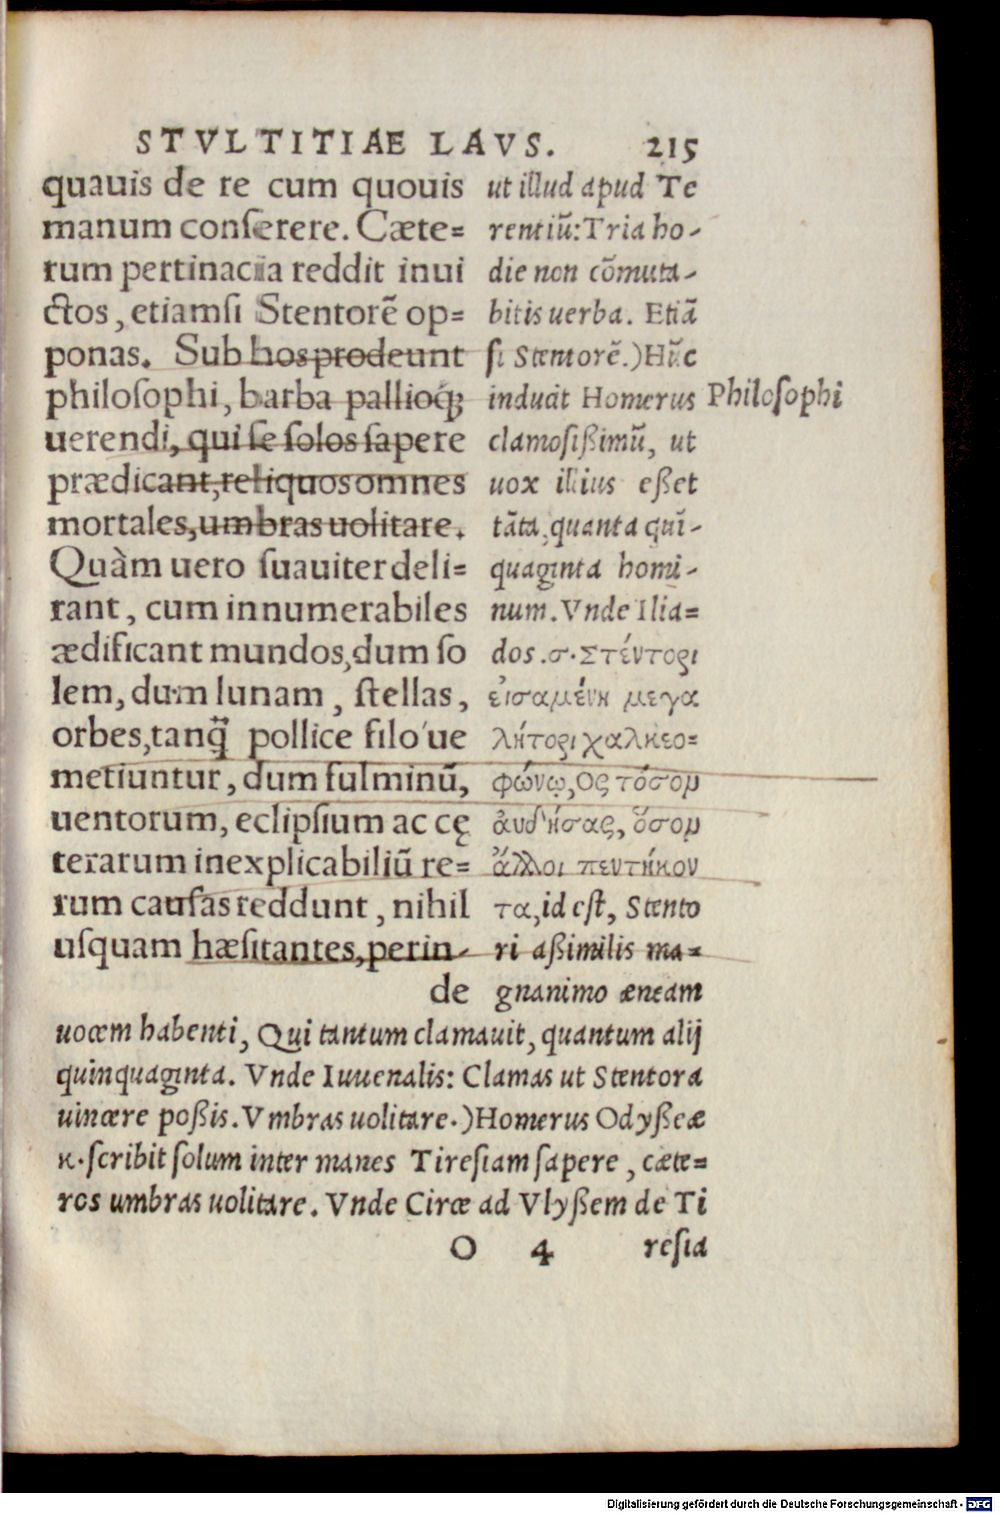 STVLTITIAE LAVS. 215
quauis de re cum quouis
manum conſerere. Cæte=
rum pertinacia reddit inui
ctos, etiamſi Stentorẽ op=
ponas. Sub hos prodeunt
philoſophi, barba pallioq́;
uerendi, qui ſe ſolos ſapere
prædicant, reliquos omnes
mortales, umbras uolitare.
Quàm uero ſuauiter deli=
rant, cum innumerabiles
ædificant mundos, dum ſo
lem, dum lunam, ſtellas,
orbes, tanq̃ pollice filo ́ue
metiuntur, dum fulminũ,
uentorum, eclipſium ac cę
terarum inexplicabiliũ re=
rum cauſas reddunt, nihil
uſquam hæſitantes, perin-
de
ut illud apud Te
rentiũ: Tria ho-
die non cõmuta-
bitis uerba. Etiã
ſi Stentorẽ.) Hũc
inducit Homerus
clamoſißimũ, ut
uox illius eßet
tãta, quanta quĩ-
quaginta homi-
num. Vnde Ilia=
dos. σ. Στέντορι
εἰσαμένη μεγα
λήτορι χαλκεο=
φώνῳ, Ος τόσον
ἀυδήσας, ὅσον
ἄλλοι πεντήκον
τα, id eſt, Stento
ri aßimilis ma=
gnanimo æneam
Philoſophi
uocem habenti, Qui tantum clamauit, quantum alij
quinquaginta. Vnde Iuuenalis: Clamas ut Stentora
uincere poßis. Vmbras uolitare.) Homerus Odyßeæ
κ. ſcribit ſolum inter manes Tireſiam ſapere, cæte=
ros umbras uolitare. Vnde Circe ad Vlyßem de Ti
O 4 reſia
Digitalisierung gefördert durch die Deutsche Forschungsgemeinschaft - DFG